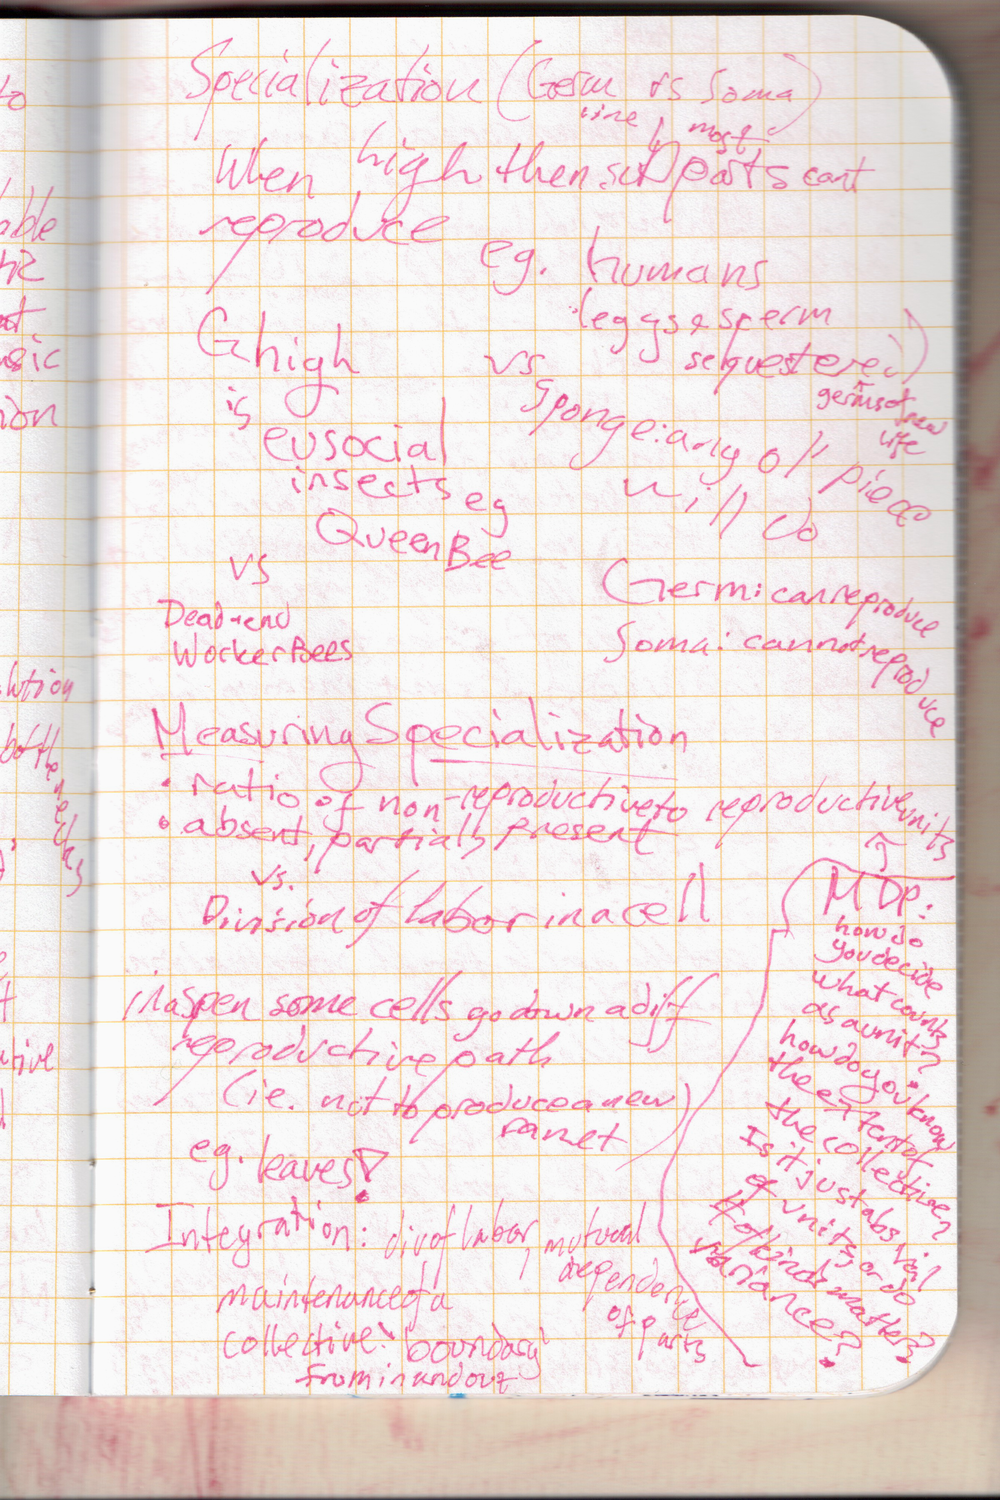 Specialization (Germ vs Soma)
line
most
When high then parts cant
reproduce
eg. humans
(eggs & sperm
sequestered)
germs of new
life
G high
is
eusocial
insects eg
Queen Bee
vs
Dead-end
Worker Bees
vs
Sponge: any ol' piece
will do
Germ: can reproduce
Soma: cannot reproduce
Measuring Specialization
• ratio of non-reproductive to reproductive units
• absent, partial, present
vs.
Division of labor in a cell
in aspen some cells go down a diff
reproductive path
(ie. not to produce a new
ramet)
eg. leaves!
Integration: div of labor, mutual
dependence
of parts
maintenance of a
collective: 'boundary'
from in and out
MDP:
how do
you decide
what counts
as a unit?
how do you know
the extent of
the collective?
Is it just abs. vol
of units, or do
# of kinds matter?
variance?
to
able
ion
lution
bottlenecks
ative